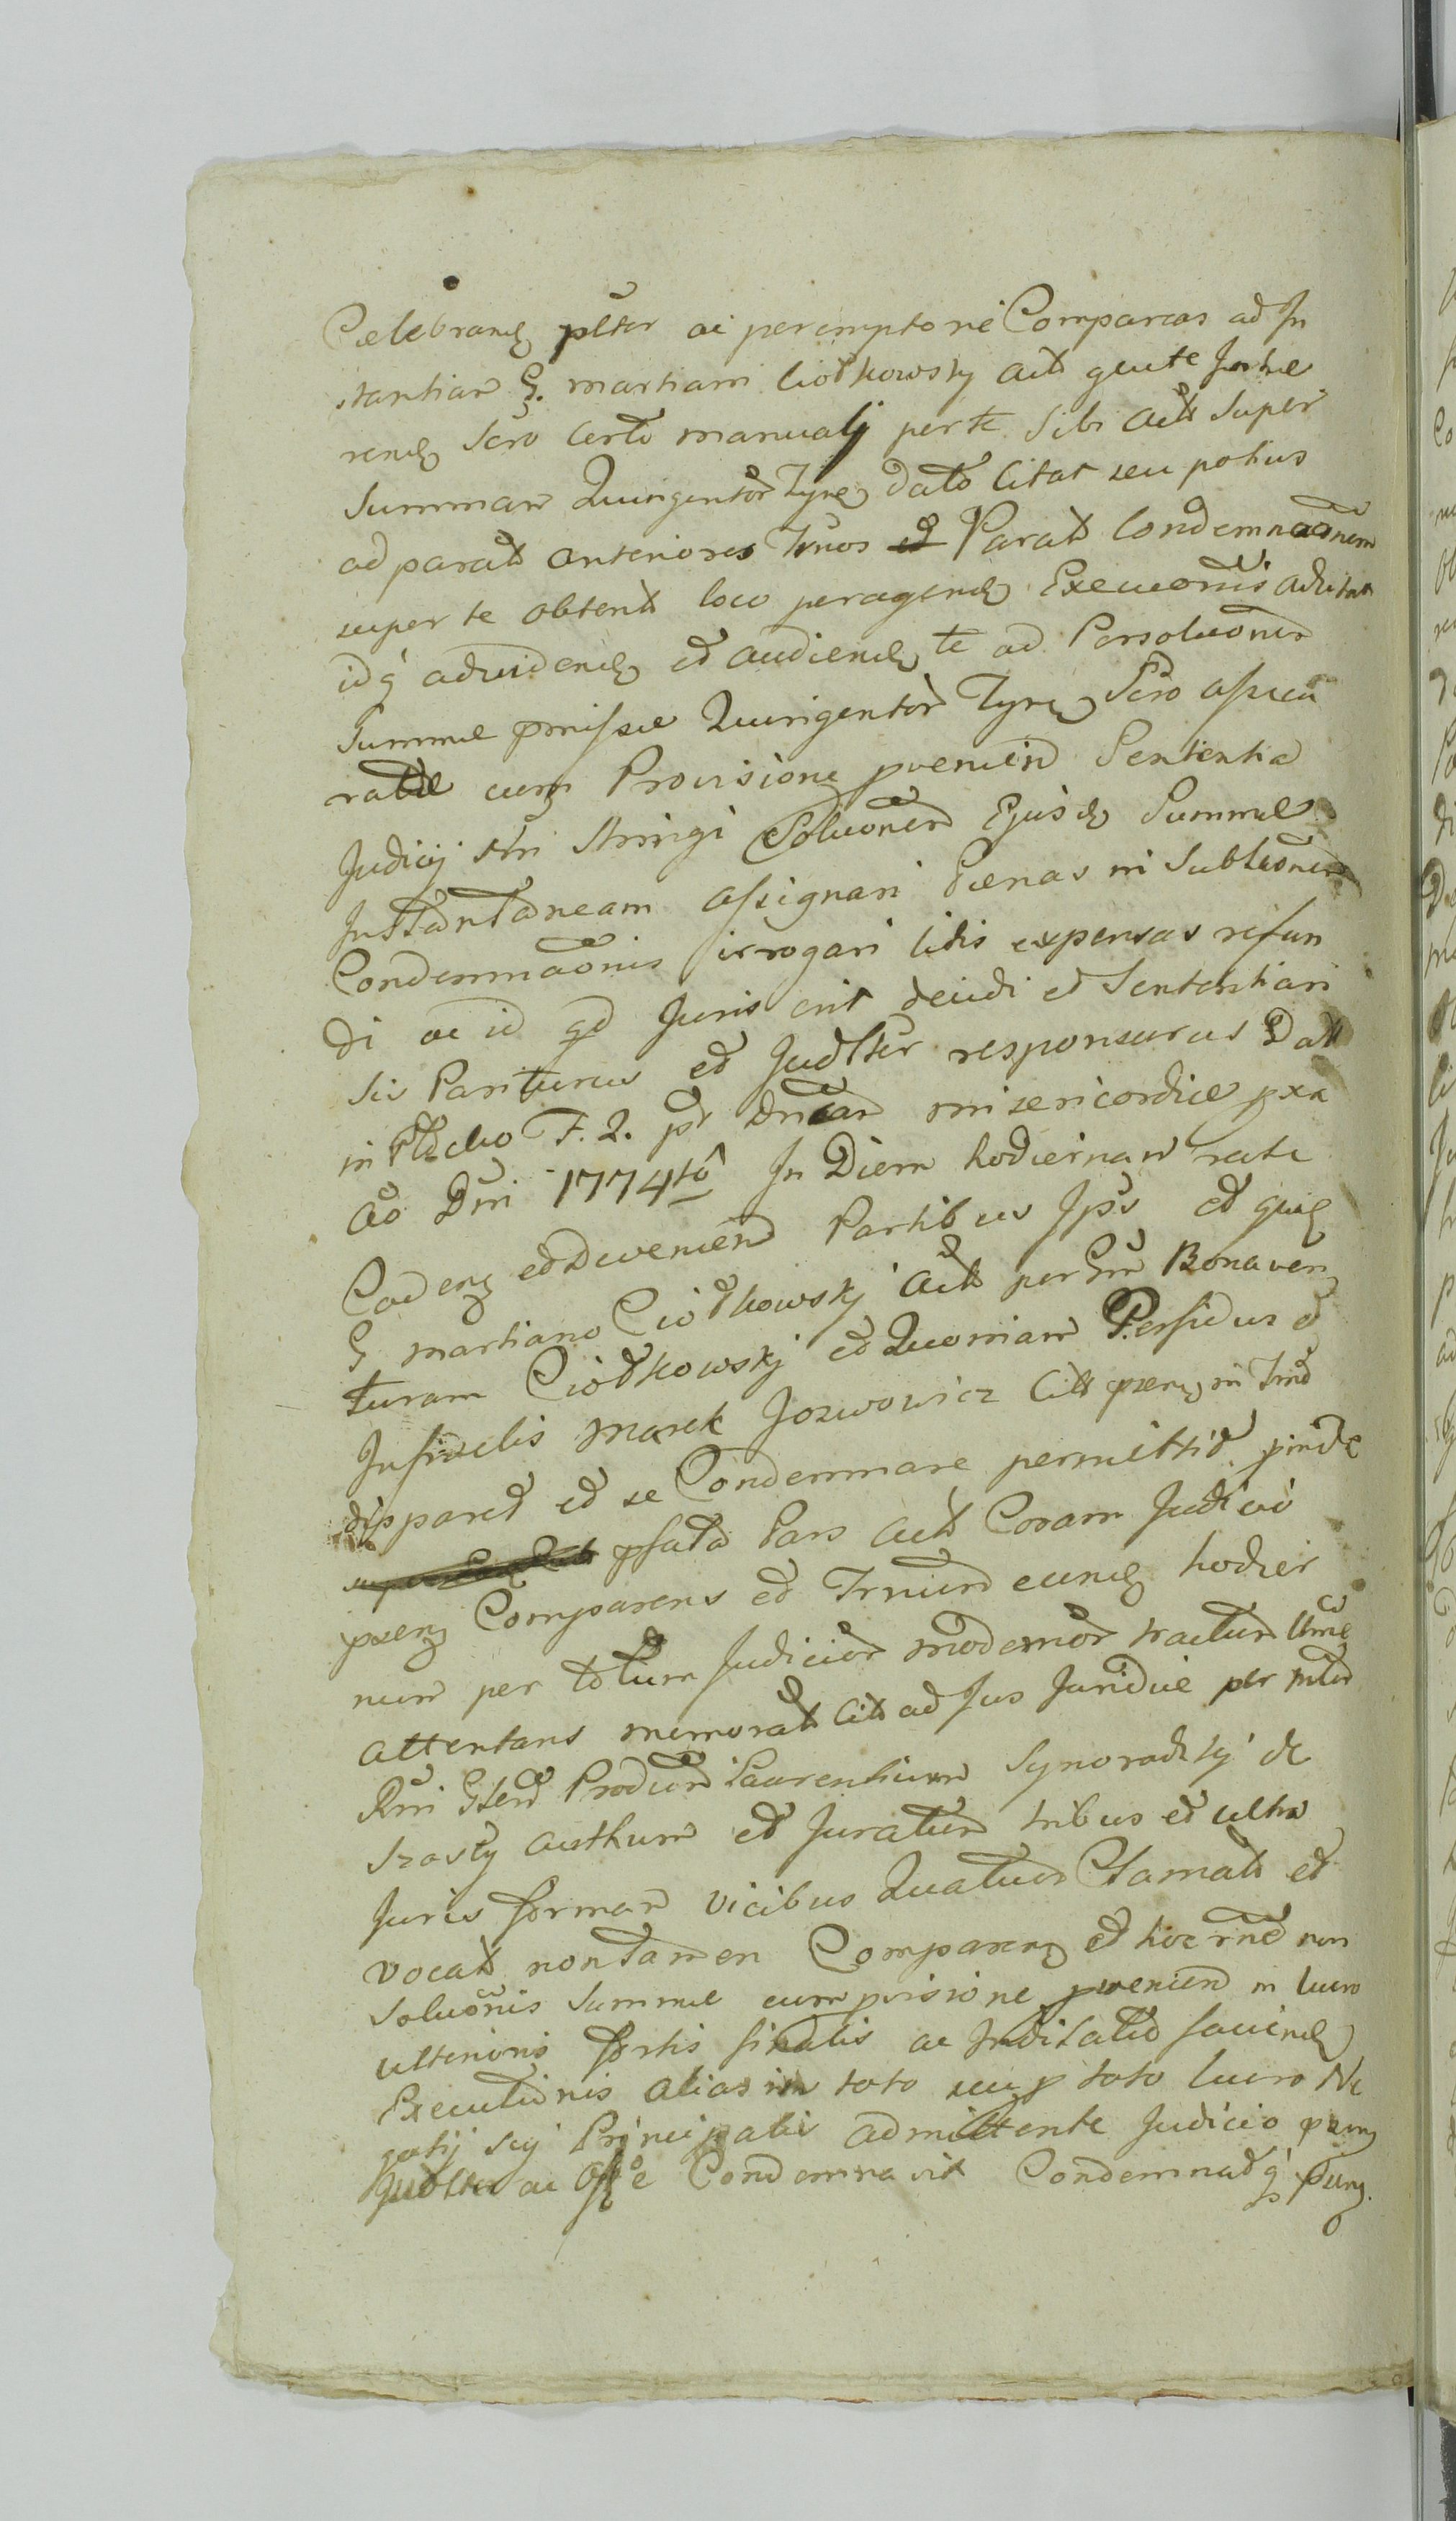 Celebrand pltēr ac peremptorie Compareas ad In
stantiam G. martiani Ciołkowsky act qui te Inhæ
rend scro certo manuali per te sibi act super
Summam Quingentor Tynf dato citat seu potius
ad parat anteriores Trnos et Parat Condemnaõnem
super te obtent loco peragend Execuõnis adcitat
idq advidend et audiend te ad Persoluõnem
Summæ pmissæ Quingentor Tynf scro assecu
ratæ cum Provisione proenien Sententia
Judicij sŭi stringi Soluõnem Ejusd Summæ
Instantaneam assignari Pænas in Sublaõnem
Condemnaõnis irrogari litis expensas refun
di ac id qd Juris erit decidi et Sententiari
sis Pariturus et Judltēr responsurus Datt
in F. 2. pt Dnĩcam misericordiæ pxa
Aõ Dnĩ 1774tô In Diem hodiernam recte
Caden et Devenien Partibus Ips et quid
G martiano Ciołkowskj Act per Gm Bonaven
turam Ciołkowskj et Quoniam Perfidus et
Infidelis Marek Jozwowicz Citt psens in Trnõ
dispparet et se Condemnare permittit pinde
psata Pars Act Coram Judicio
psens Comparens et Trnum eund hodier
num per totum Judicior modernor tractum ltme
attentans memorat Citt ad Jus Juridice per mltm
Rnĩ Gnlem Prodium Laurentium Synoradzkj de
Szosty authum et Juratum tribus et ultra
Juris formam vicibus Quatuor Clamat et
vocat non tamen Comparen et hoc rne non
soluõnis Summæ cum pvisione proenien in lucro
ulterioris sortis finalis ac Inditate faciend
Executionis alias in toto seu p toto lucro Ne
gotij sui Principalis admittente Judicio psen
Judltēr ac Offe Condemnavit Condemnatq psens.